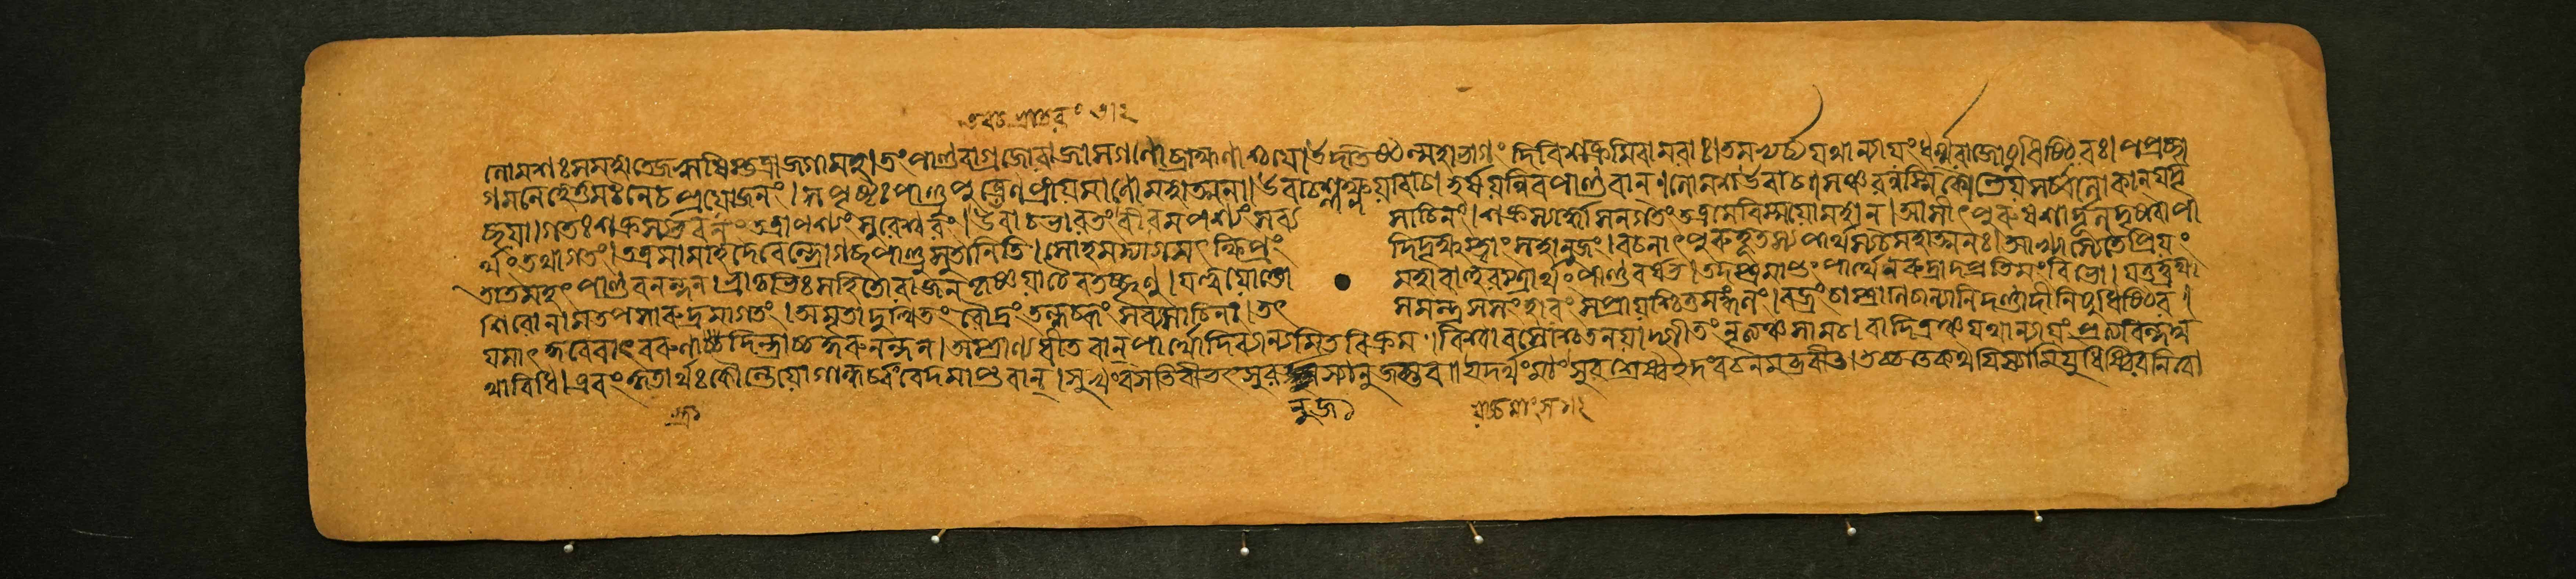 তবচভ্রাতরং ৩।২
লোমশঃসুমহাতেজাঋষিস্তত্রাজগামহ।তংপাণ্ডবাগ্রজোরাজাসগণোব্রাহ্মণাশ্চযে।উদতিষ্ঠন্মহাভাগংদিবিশক্রমিবামরাঃ।তমভ্যর্চ্চ্যযথান্যায়ংধর্ম্মরাজোযুধিষ্ঠিরঃ।পপ্রচ্ছ
গমনেহেতুমটনেচপ্রয়োজনং।সপৃষ্টঃপাণ্ডুপুত্রেণপ্রীয়মাণোমহামনাঃ।উবাচশ্লক্ষ্ণয়াবাচাহর্ষয়ন্নিবপাণ্ডবান্।লোমশউবাচ।সঞ্চরন্নস্মিকৌন্তেয়সর্ব্বলোকান্যদৃ
চ্ছয়া।গতঃশক্রস্যভবনংতত্রাপশ্যংসুরেশ্বরং।উবাচভ্রাতরংবীরমপশ্যংসব্যসাচিনং।শক্রস্যার্দ্ধাসনগতংতত্রমেবিস্ময়োমহান্।আসীৎপুরুষশার্দ্দূলদৃষ্ট্বাপা
র্থংতথাগতং।তত্রমামাহদেবেন্দ্রোগচ্ছপাণ্ডুসুতানিতি।সোহমভ্যাগমংক্ষিপ্রংদিদৃক্ষুস্ত্বাংসহানুজং।বচনাৎপুরুহূতস্যপার্থস্যচমহাত্মনঃ।আখ্যাস্যেতেপ্রিয়ং
তাতমহৎপাণ্ডবনন্দন।ভ্রাতৃভিঃসহিতোরাজন্কৃষ্ণয়াচৈবতচ্ছৃণু।যত্ত্বয়োক্তোমহাবাহুরস্ত্রার্থংপাণ্ডবর্ষভ।তদস্ত্রমাপ্তংপার্থেনরুদ্রাদপ্রতিমংবিভো।যত্তদ্ব্রহ্ম
শিরোনামতপসারুদ্রমাগতং।অমৃতাদুত্থিতংরৌদ্রংতল্লব্ধংসব্যসাচিনা।তৎসমন্ত্রসসংহারংসপ্রায়শ্চিত্তমঙ্গলং।বজ্রংচাস্ত্রাণিচান্যানিদণ্ডাদীনিযুধিষ্ঠির।
যমাৎকুবেরাৎবরুণাচ্চদিন্দ্রাচ্চকুরুনন্দন।অস্ত্রাণ্যধীতবান্পার্থোদিব্যান্যমিতবিক্রমঃ।বিশ্বাবসোশ্চতনয়াদ্গীতংনৃত্যঞ্চসামচ।বাদিত্রঞ্চযথান্যায়ংপ্রত্যবিন্দদ্য
থাবিধি।এবংকৃতার্থঃকৌন্তেয়োগান্ধর্ব্বংবেদমাপ্তবান্।সুখংবসতিবীভৎসুরনুজস্যানুজস্তব॥যদর্থংমাংসুরশ্রেষ্ঠইদংবচনমব্রবীৎ।তচ্চতেকথয়িষ্যামিযুধিষ্ঠিরনিবো
স্ত্রা
নুজা